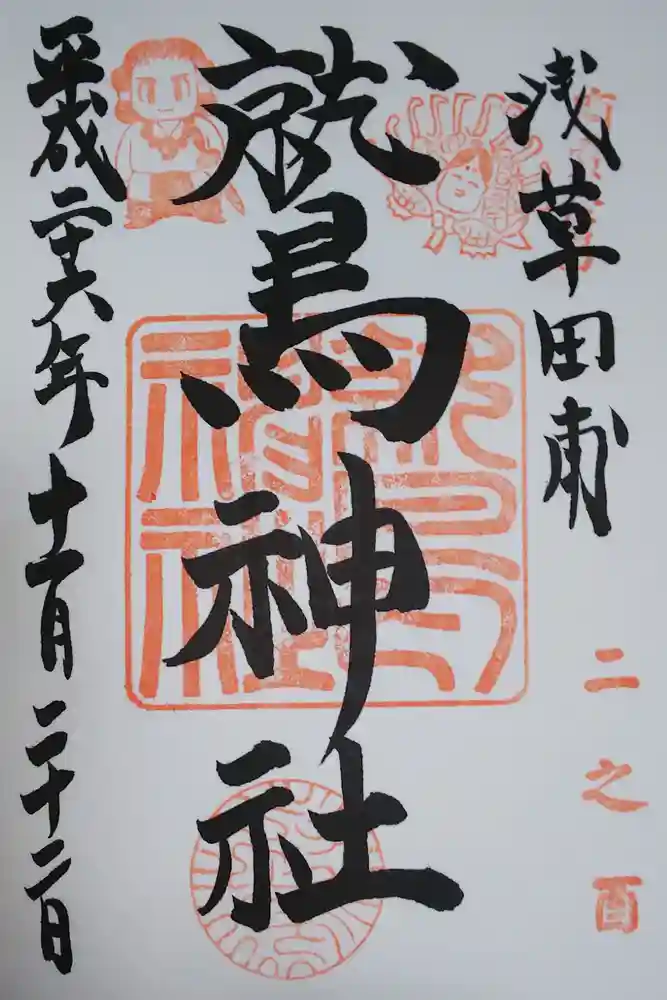 浅草田甫
二之酉
鷲神社
鷲神社
神社
平成二十六年十一月二十二日